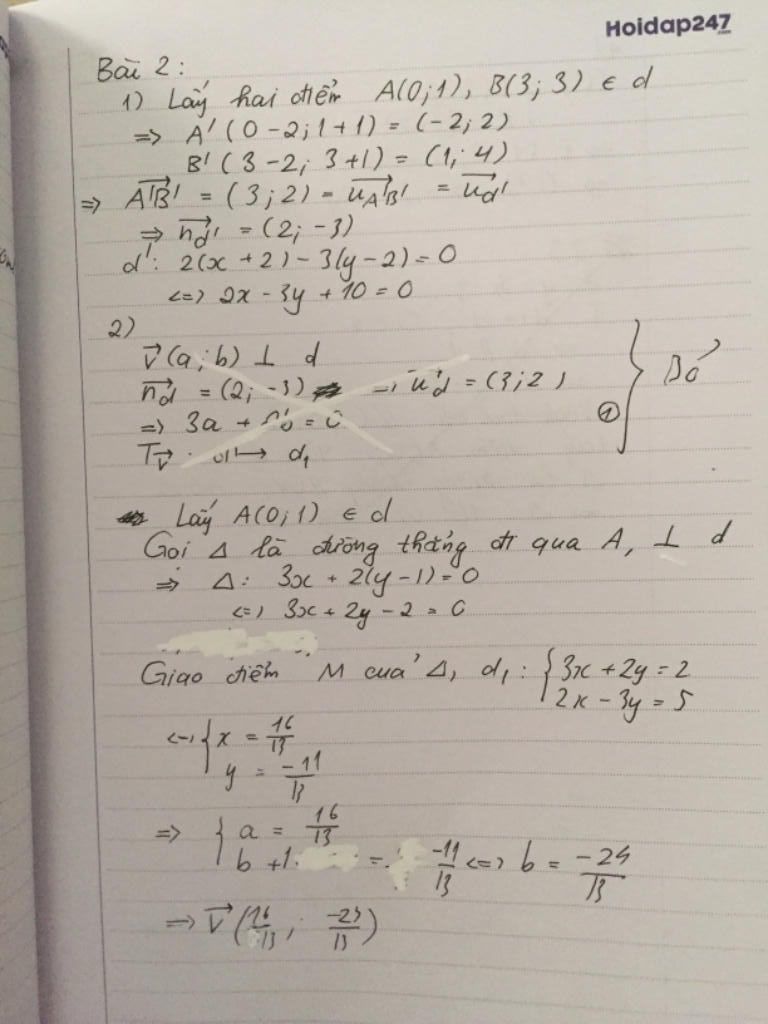 Hoidap247
.com
Bài 2:
1) Lấy hai điểm A(0;1), B(3;3) ∈ d
=> A'(0-2;1+1) = (-2;2)
B'(3-2; 3+1) = (1;4)
=> A'B' = (3;2) = u A'B' = u d'
=> n d' = (2;-3)
d': 2(x+2)-3(y-2)=0
<=> 2x-3y+10=0
2)
v(a;b) ⊥ d
n d = (2;-3) u d = (3;2)
=> 3a + = 0
T v d ↦ d₁
① } Bỏ
Lấy A(0;1) ∈ d
Gọi Δ là đường thẳng đi qua A, ⊥ d
=> Δ: 3x + 2(y-1)=0
<=> 3x+2y-2=0
Giao điểm M của Δ, d₁: { 3x+2y=2
2x-3y=5
<=> { x = 16/13
y = -11/13
=> { a = 16/13
b+1 = -11/13 <=> b = -24/13
=> v (16/13; /13)